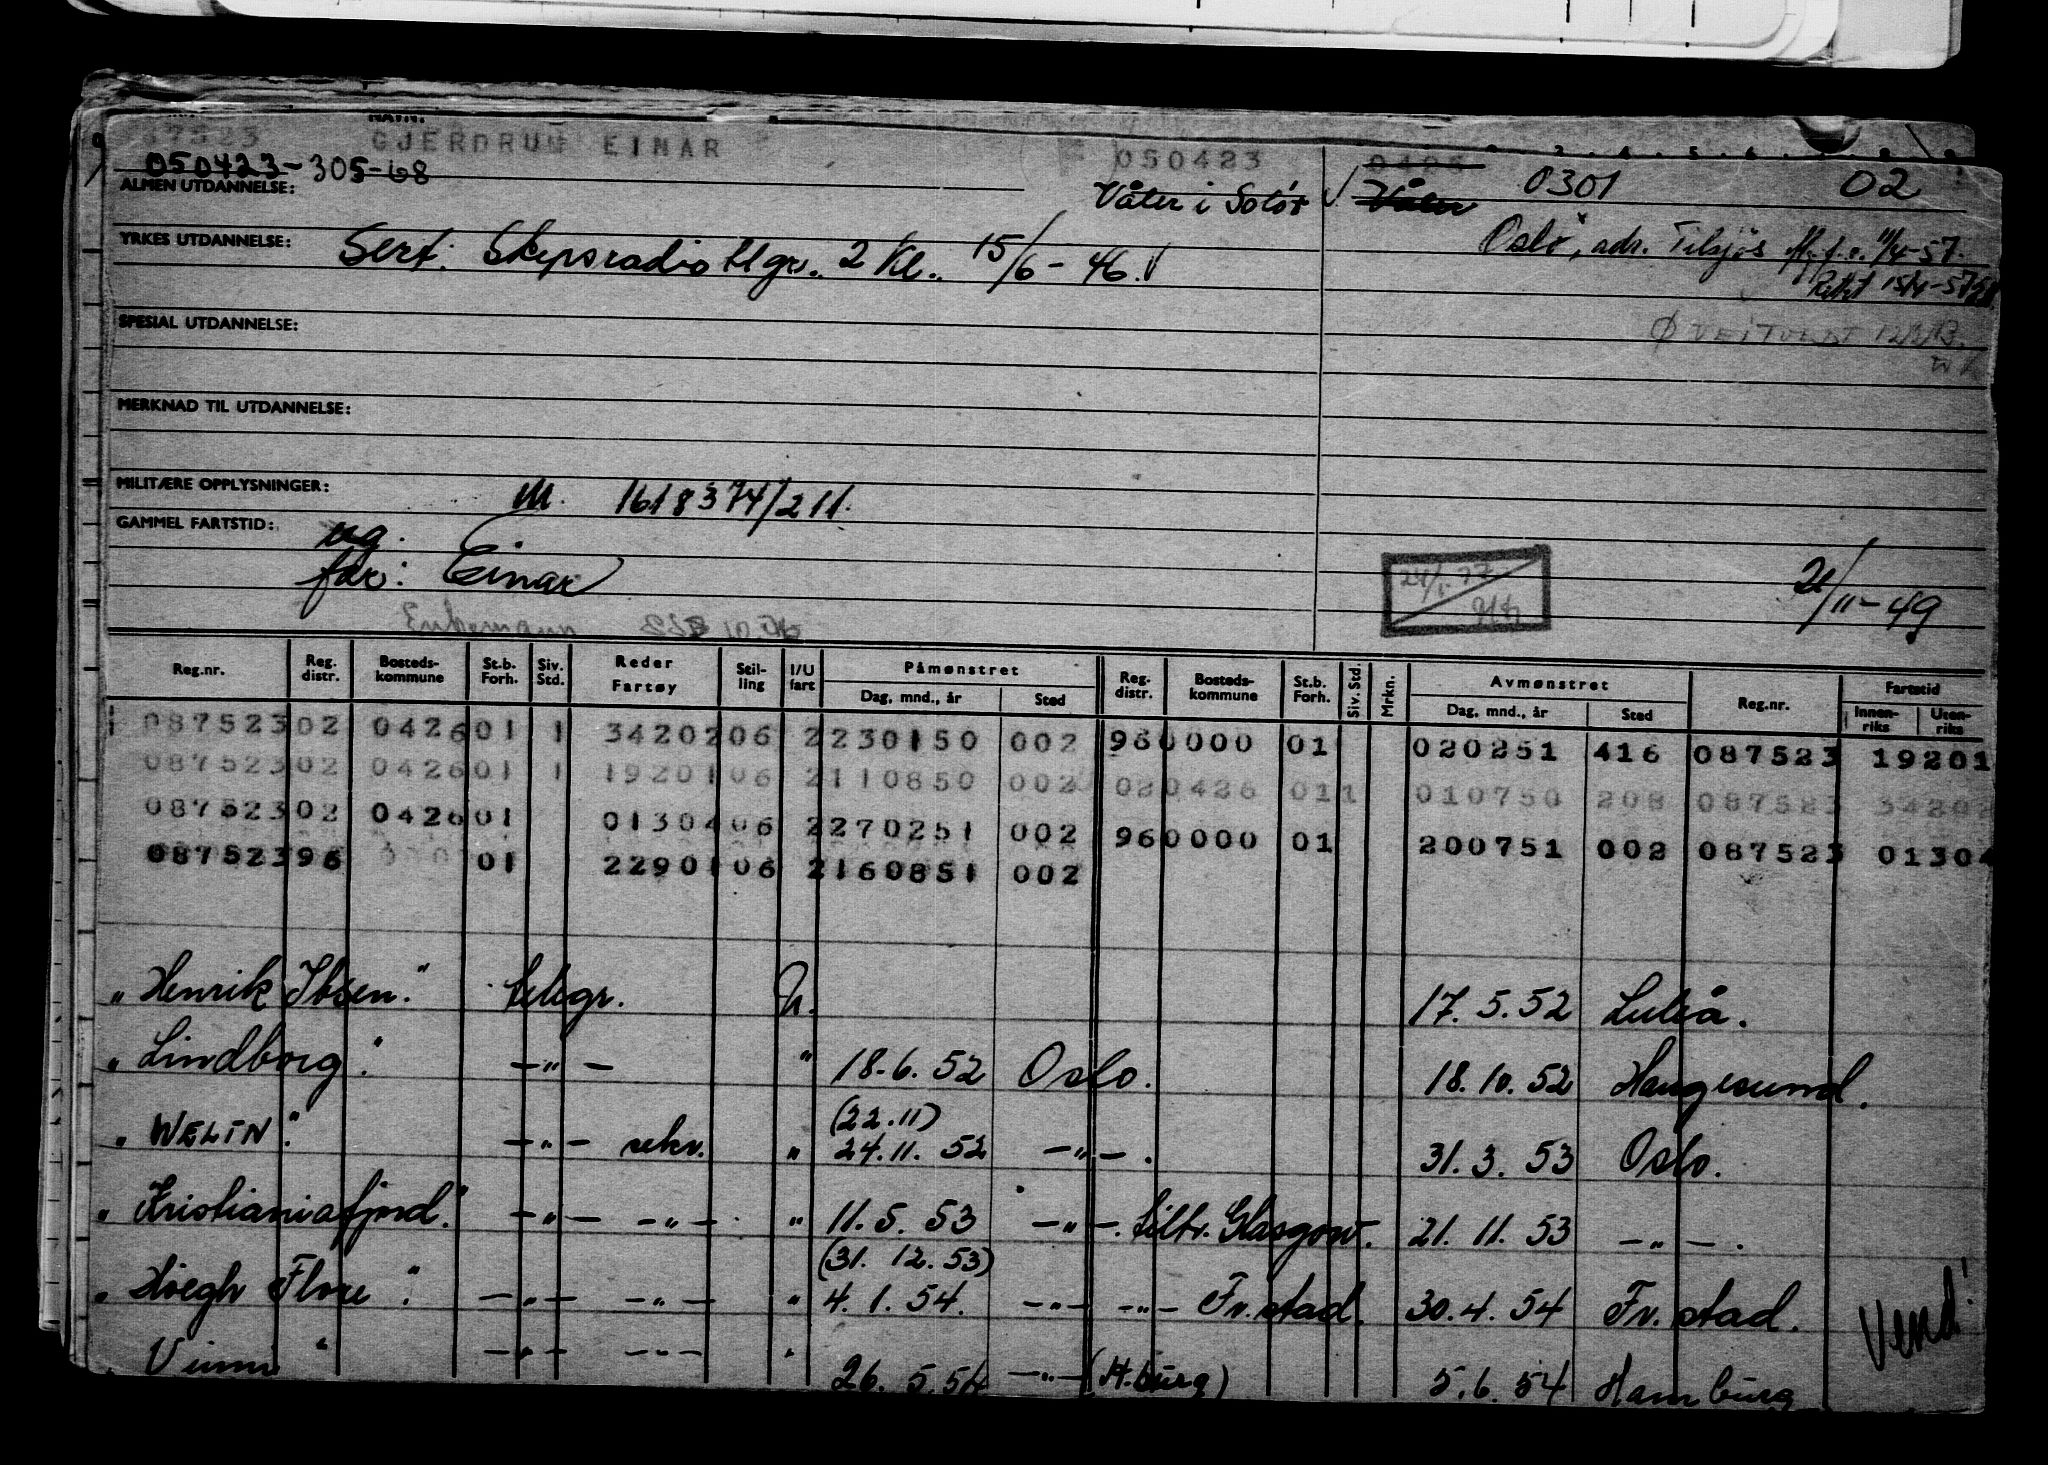 NAVN:
87523 GJERDRUM EINAR 050423 0301 02
050423-305-68
ALMEN UTDANNELSE: Våler i Solør Våler
YRKES UTDANNELSE: Sert. Skipsradiotlgr. 2 Kl. 15/6 - 46. Oslo, adr. Tilsjøs 11/4-57.
SPESIAL UTDANNELSE:
MERKNAD TIL UTDANNELSE:
MILITÆRE OPPLYSNINGER: M. 1618374/211.
GAMMEL FARTSTID: ug.
far: Einar 21/11-49
Reg.nr. Reg. distr. Bosteds-kommune St.b. Forh. Siv. Std. Reder Fartøy Stil-ling I/U fart Påmønstret Reg. distr. Bosteds-kommune St.b. Forh. Siv. Std. Mrkn. Avmønstret Reg.nr. Fartstid
Dag, mnd., år Sted Dag, mnd., år Sted Innen-riks Uten-riks
087523 02 0426 01 1 34202 06 2 230150 002 96 0000 01 020251 416 087523 19201
087523 02 0426 01 1 19201 06 2 110850 002 02 0426 01 1 010750 208 087523 34202
087523 02 0426 01 01304 06 2 270251 002 96 0000 01 200751 002 087523 01304
087523 96 01 22901 06 2 160851 002
"Henrik Ibsen." telegr. U. 17.5.52 Luleå.
"Lindborg". -"- " 18.6.52 Oslo. 18.10.52 Haugesund.
(22.11)
"WELIN". -"- rekv. " 24.11.52 -"-. 31.3.53 Oslo.
"Kristianiafjord." -"- -"- " 11.5.53 -"-. tiltr. Glasgow. 21.11.53 -"-.
(31.12.53)
"Høegh Flore". -"- -"- " 4.1.54. -"- -"- Fr.stad. 30.4.54 Fr.stad. Vend!
"Vinni" -"- -"- " 26.5.54 -"- (H.burg) 5.6.54 Hamburg